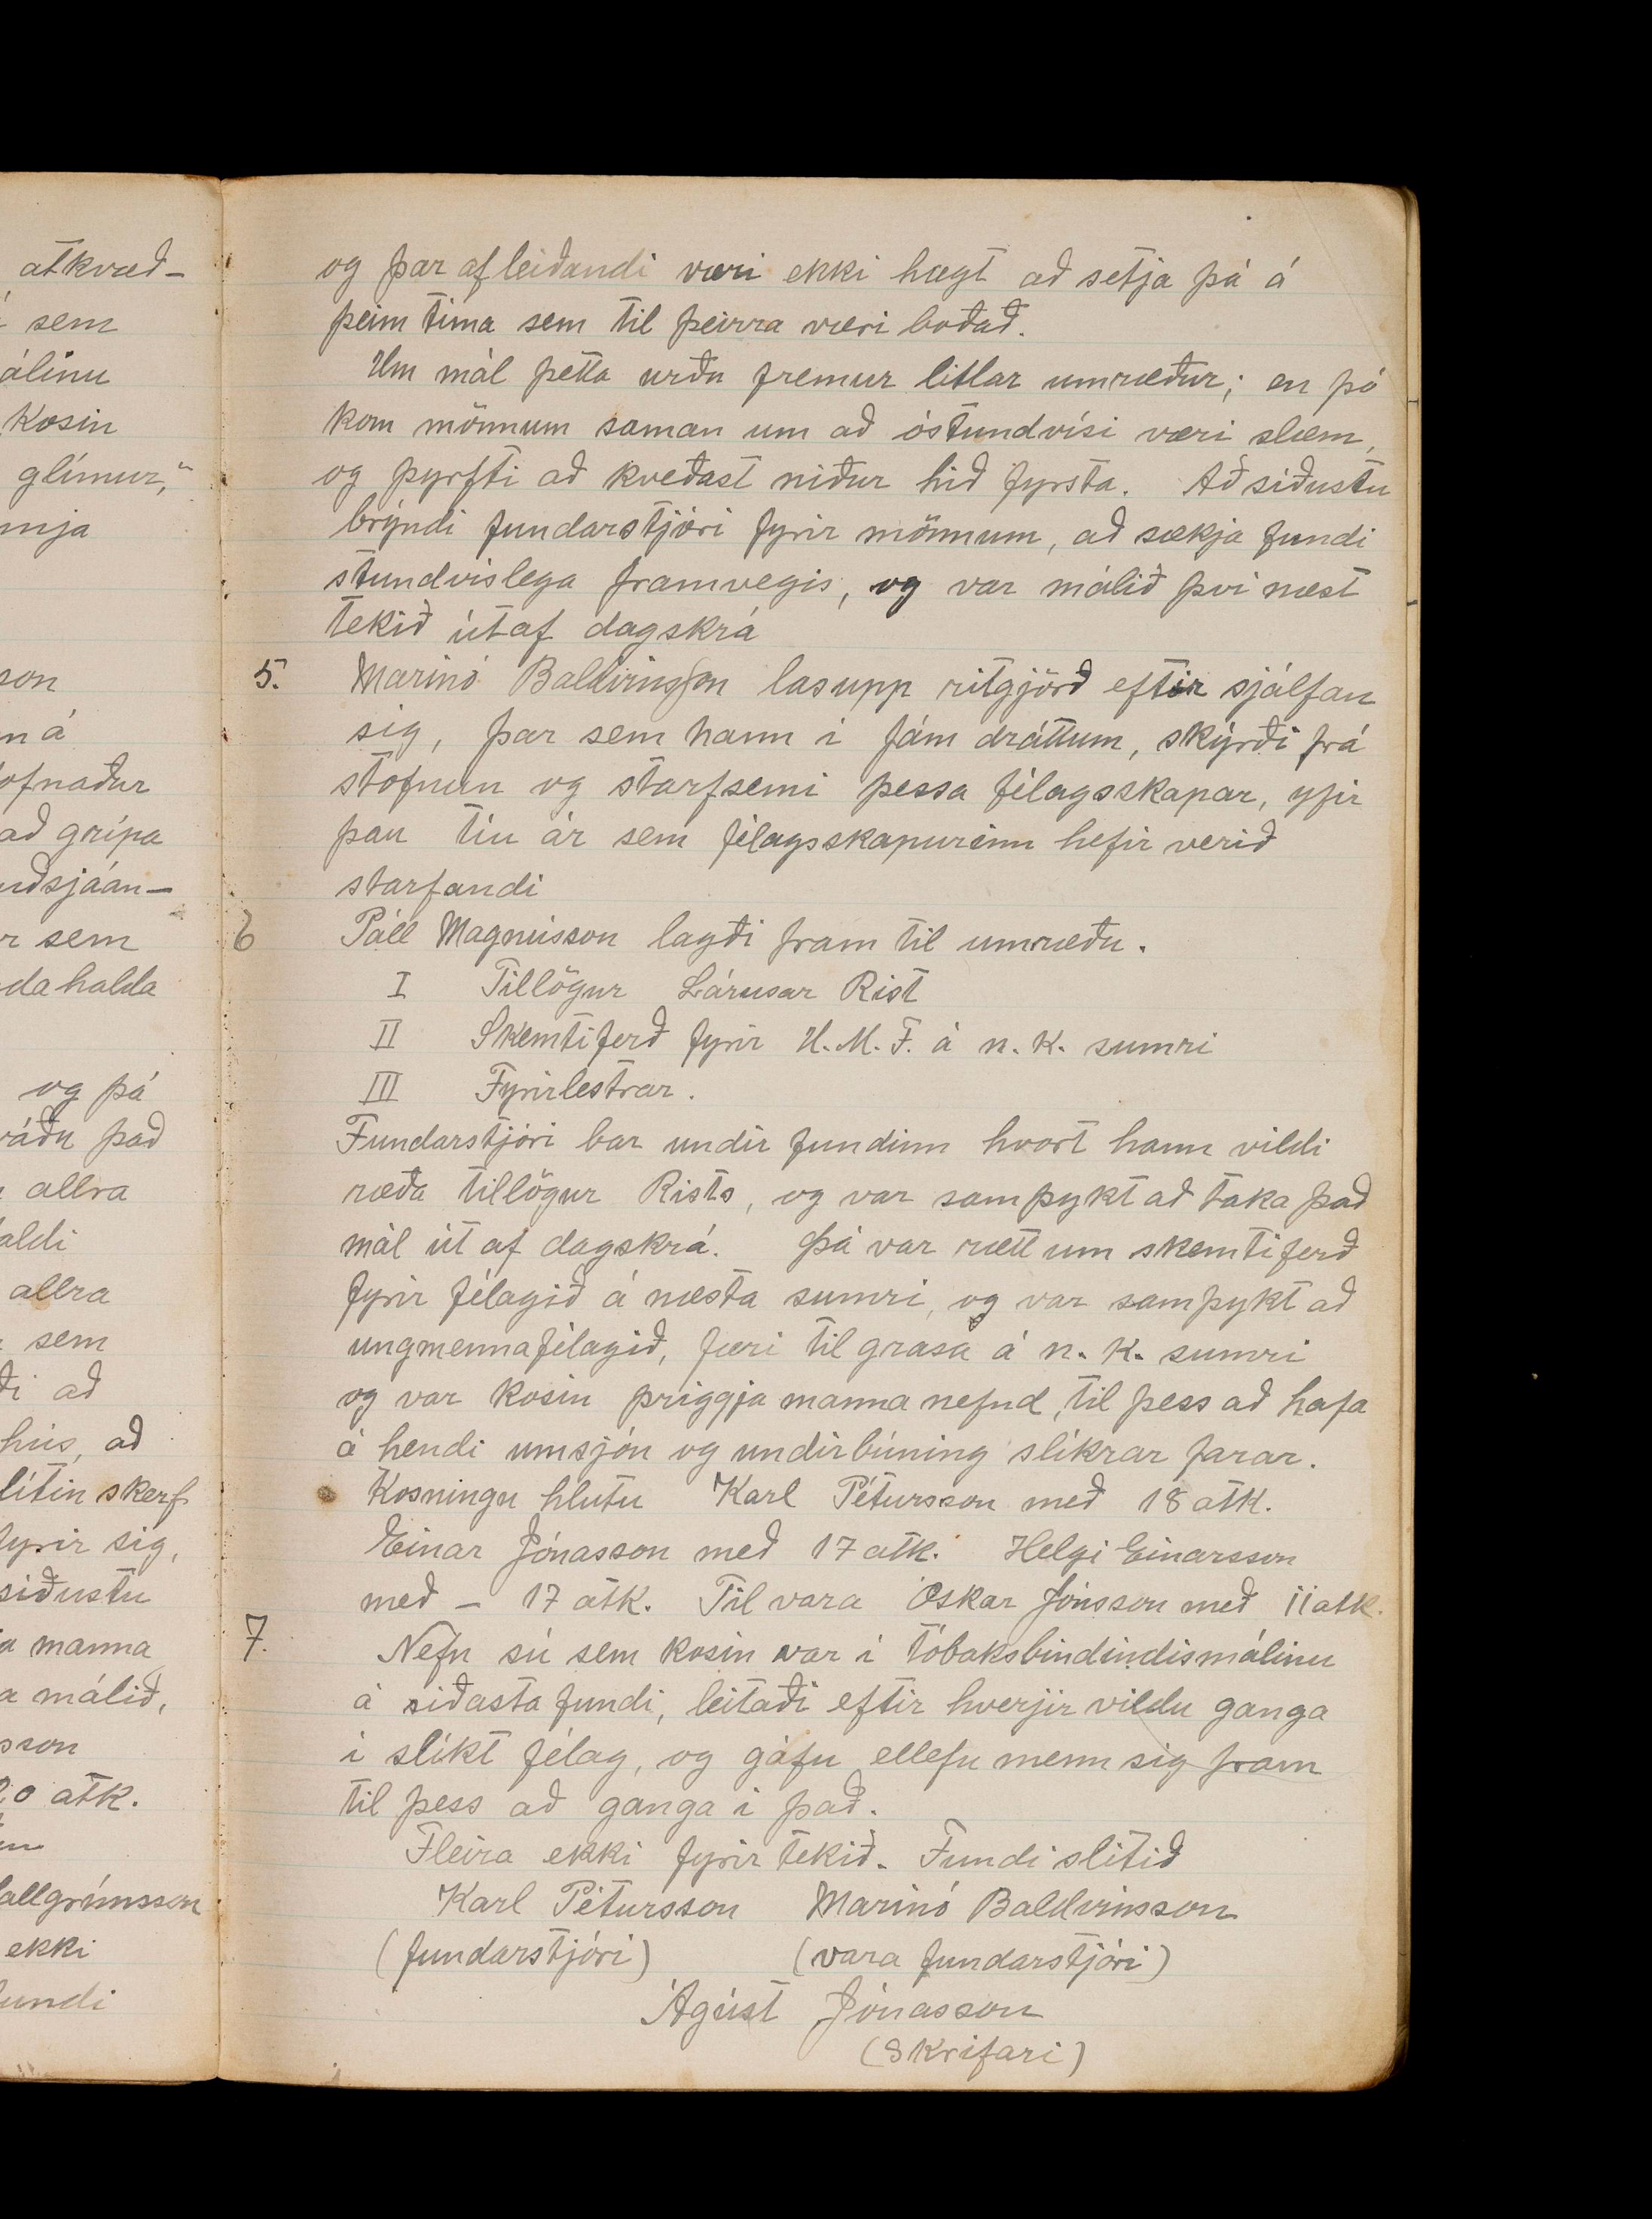 atkvæð-
sem
álinu
Kosin
glímur,"
mja
son
n á
ofnaður
að grípa
uðsjáan-
r sem
da halda
og þá
ráðu það
allra
aldi
allra
sem
ði að
hús, að
lítin skerf
fyrir sig,
síðustu
a manna
a málið,
sson
20 atk.
allgrímsson
ekki
fundi
og þar af leiðandi væri ekki hægt að setja þá á
þeim tíma sem til þeirra væri boðað.
Um mál þetta urðu fremur litlar umræður; en þó
kom mönnum saman um að óstundvísi væri slæm,
og þyrfti að kveðast niður hið fyrsta. Að síðustu
brýndi fundarstjóri fyrir mönnum, að sækja fundi
stundvíslega framvegis, og var málið því næst
tekið út af dagskrá
5. Marinó Baldvinsson las upp ritgjörð eftir sjálfan
sig, þar sem hann í fám dráttum, skýrði frá
stofnun og starfsemi þessa félagsskapar, yfir
þau tíu ár sem félagsskapurinn hefir verið
starfandi
6 Páll Magnússon lagði fram til umræðu.
I Tillögur Lárusar Rist
II Skemtiferð fyrir U.M.F. á n.k. sumri
III Fyrirlestrar.
Fundarstjóri bar undir fundinn hvort hann vildi
ræða tillögur Rists, og var samþykt að taka það
mál út af dagskrá. Þá var rætt um skemtiferð
fyrir félagið á næsta sumri, og var samþykt að
ungmennafélagið, færi til grasa á n.k. sumri
og var kosin þriggja manna nefnd, til þess að hafa
á hendi umsjón og undirbúning slíkrar farar.
Kosningu hlutu Karl Pétursson með 18 atk.
Einar Jónasson með 17 atk. Helgi Einarsson
með - 17 atk. Til vara Óskar Jónsson með 11 atk.
7. Nefn sú sem kosin var í tóbaksbindindismálinu
á síðasta fundi, leitaði eftir hverjir vildu ganga
í slíkt félag, og gáfu ellefu menn sig fram
til þess að ganga í það.
Fleira ekki fyrir tekið. Fundi slitið
Karl Pétursson Marinó Baldvinsson
(fundarstjóri) (vara fundarstjóri)
Ágúst Jónasson
(Skrifari)